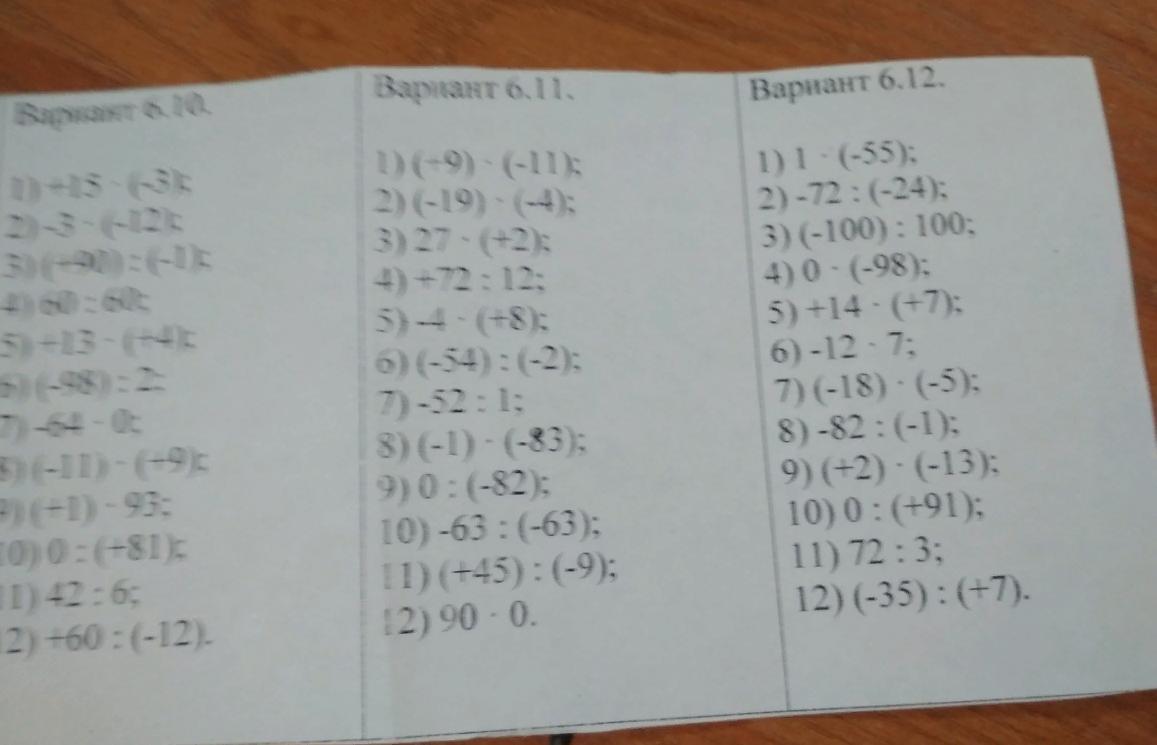 Вариант 6.10.
1) +15 · (-3);
2) -3 · (-12);
3) : (-1);
4) 60 : 60;
5) +13 · (+4);
6) (-98) : 2;
7) -64 · 0;
8) (-11) · (+9);
9) (+1) · 93;
10) 0 : (+81);
11) 42 : 6;
12) +60 : (-12).
Вариант 6.11.
1) (+9) · (-11);
2) (-19) · (-4);
3) 27 · (+2);
4) +72 : 12;
5) -4 · (+8);
6) (-54) : (-2);
7) -52 : 1;
8) (-1) · (-83);
9) 0 : (-82);
10) -63 : (-63);
11) (+45) : (-9);
12) 90 · 0.
Вариант 6.12.
1) 1 · (-55);
2) -72 : (-24);
3) (-100) : 100;
4) 0 · (-98);
5) +14 · (+7);
6) -12 · 7;
7) (-18) · (-5);
8) -82 : (-1);
9) (+2) · (-13);
10) 0 : (+91);
11) 72 : 3;
12) (-35) : (+7).